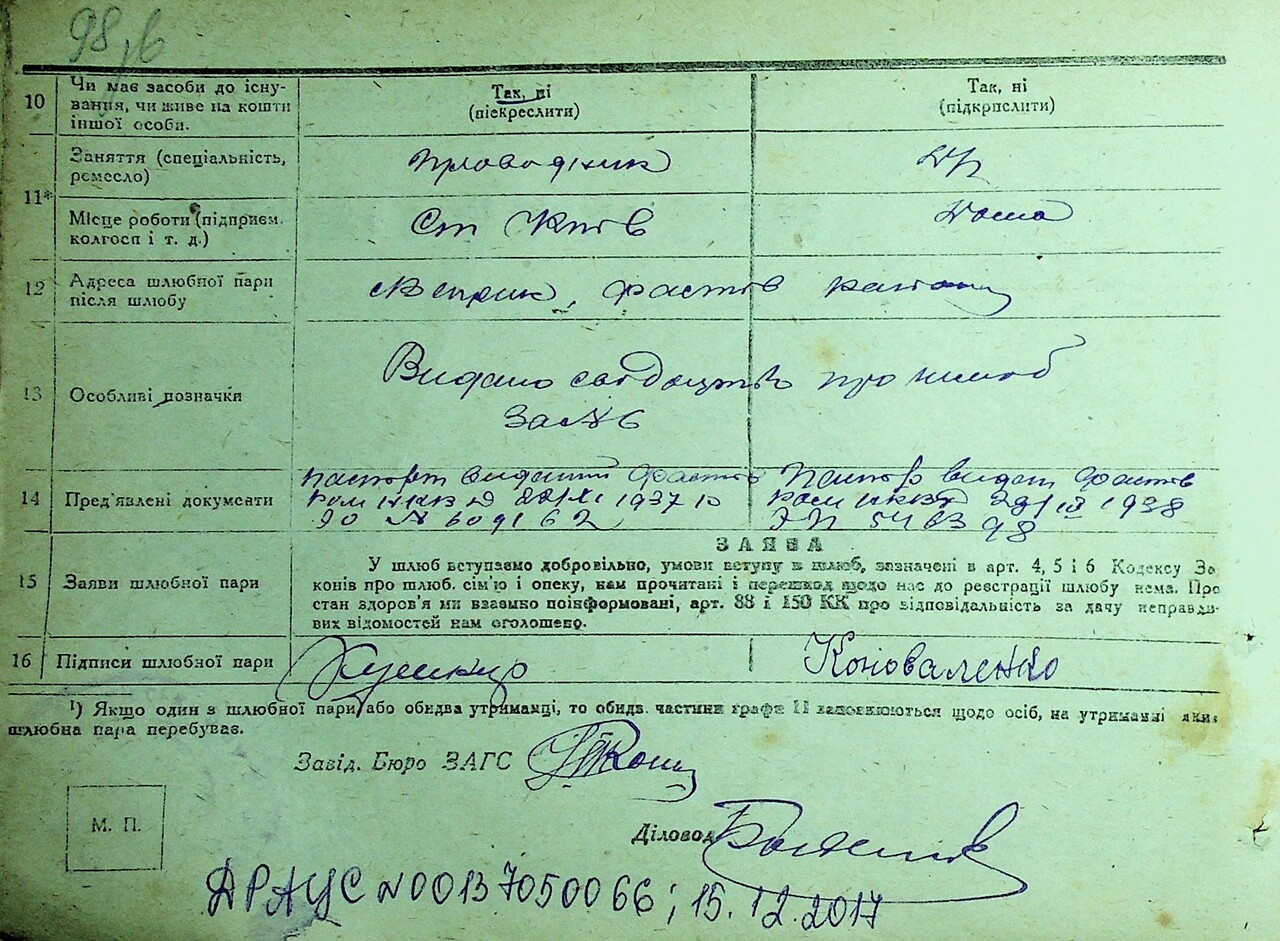 98
10 Чи має засоби до існу-
вання, чи живе на кошти
іншої особи.
Так, ні
(підкреслити)
Так, ні
(підкрпслити)
11* Заняття (спеціальність,
ремесло)
проводник
др
Місце роботи (підприєм.
колгосп і т. д.)
Ст Київ
дома
12 Адреса шлюбної пари
після шлюбу
Веприк, Фастів району
13 Особливі позначки
Видано свідоцтво про шлюб
за № 6
14 Пред'явлені документи
паспорт виданий Фастів
ком НКВД 1937 р
№ 609162
Паспор видан Фастів
ком НКВД 1938
546398
ЗАЯВА
15 Заяви шлюбної пари
У шлюб вступаємо добровільно, умови вступу в шлюб, зазначені в арт. 4, 5 і 6 Кодексу За
конів про шлюб. сім'ю і опеку, нам прочитані і перешкод щодо нас до реєстрації шлюбу нема. Про
стан здоров'я ми взаємко поінформовані, арт. 88 і 150 КК про відповідальність за дачу неправди-
вих відомостей нам оголошено.
16 Підписи шлюбної пари
Коноваленко
¹) Якщо один з шлюбної пари або обидва утриманці, то обидв. частини графи 11 заповнюються щодо осіб, на утриманні яких
шлюбна пара перебуває.
Завід. Бюро ЗАГС
М. П.
Діловод
ДРАЦС N00137050066; 15.12.2017